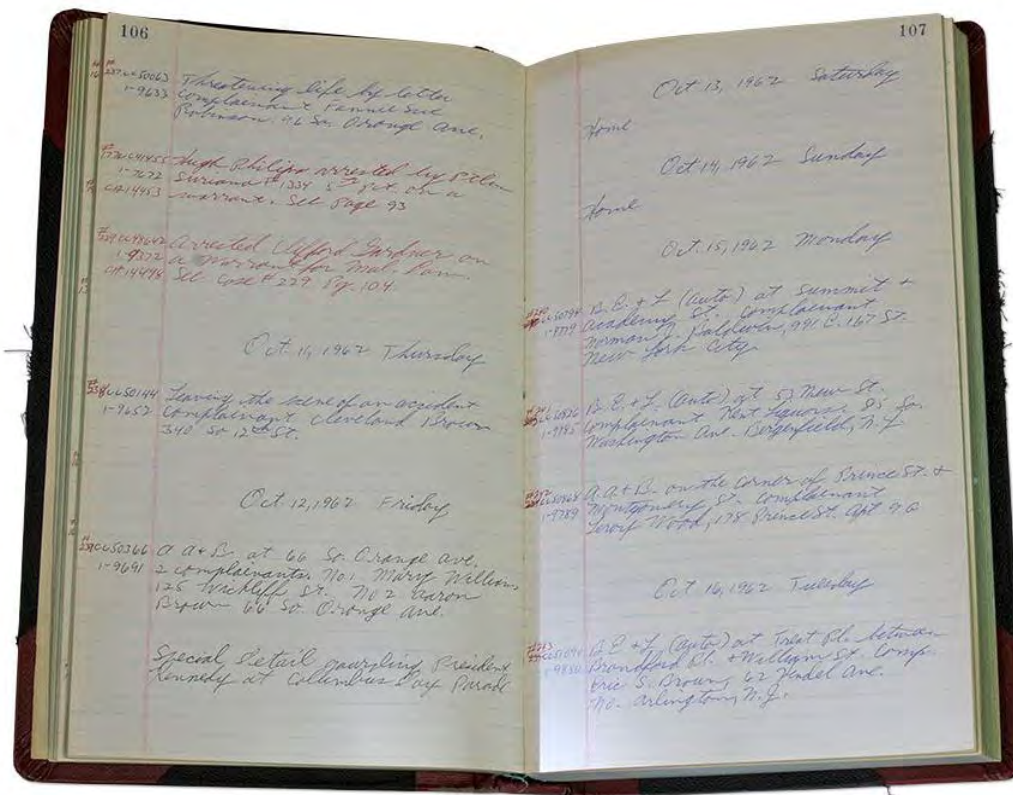 106
237 CC50063 Threatening life by letter
1-9633 complainant Fannie Sue
Robinson. 96 So. Orange Ave.
CC41455 Hugh Philips arrested by Ptlm
1-7672 Suriano # 1334 5th pct on a
CA14453 warrant. See page 93
CC48642 Arrested Clifford Gardner on
1-9372 a warrant for Mal. Dam.
CA14498 See Case # 229 Pg. 104.
Oct. 11, 1962 Thursday
238 CC50144 Leaving the scene of an accident
1-9652 complainant Cleveland Brown
340 So 12th St.
Oct. 12, 1962 Friday
239 CC50366 A A + B. at 66 So. Orange ave.
1-9691 2 complainants. No. 1 Mary William
125 Wickliff St. No 2 Aaron
Brown 66 So. Orange ave.
Special Detail guarding President
Kennedy at Columbus Day Parade
107
Oct 13, 1962 Saturday
Home
Oct 14, 1962 Sunday
Home
Oct. 15, 1962 Monday
B. E. + L (auto) at Summit +
1-9779 Academy St. Complainant
Norman J. Baldwin, 991 E. 167 St.
New York City
B. E. + L. (auto) at 53 New St.
1-9785 Complainant Kent Liquors, 85 So.
Washington Ave. Bergenfield, N. J.
A A + B. on the corner of Prince St. +
1-9789 Montgomery St. Complainant
Leroy Wood, 178 Prince St. Apt 9 G
Oct 16, 1962 Tuesday
B E + L, (auto) at Treat Pl. between
Brandford Pl. + William St. Comp.
Eric S. Brown, 62 Ave.
No. Arlington, N. J.